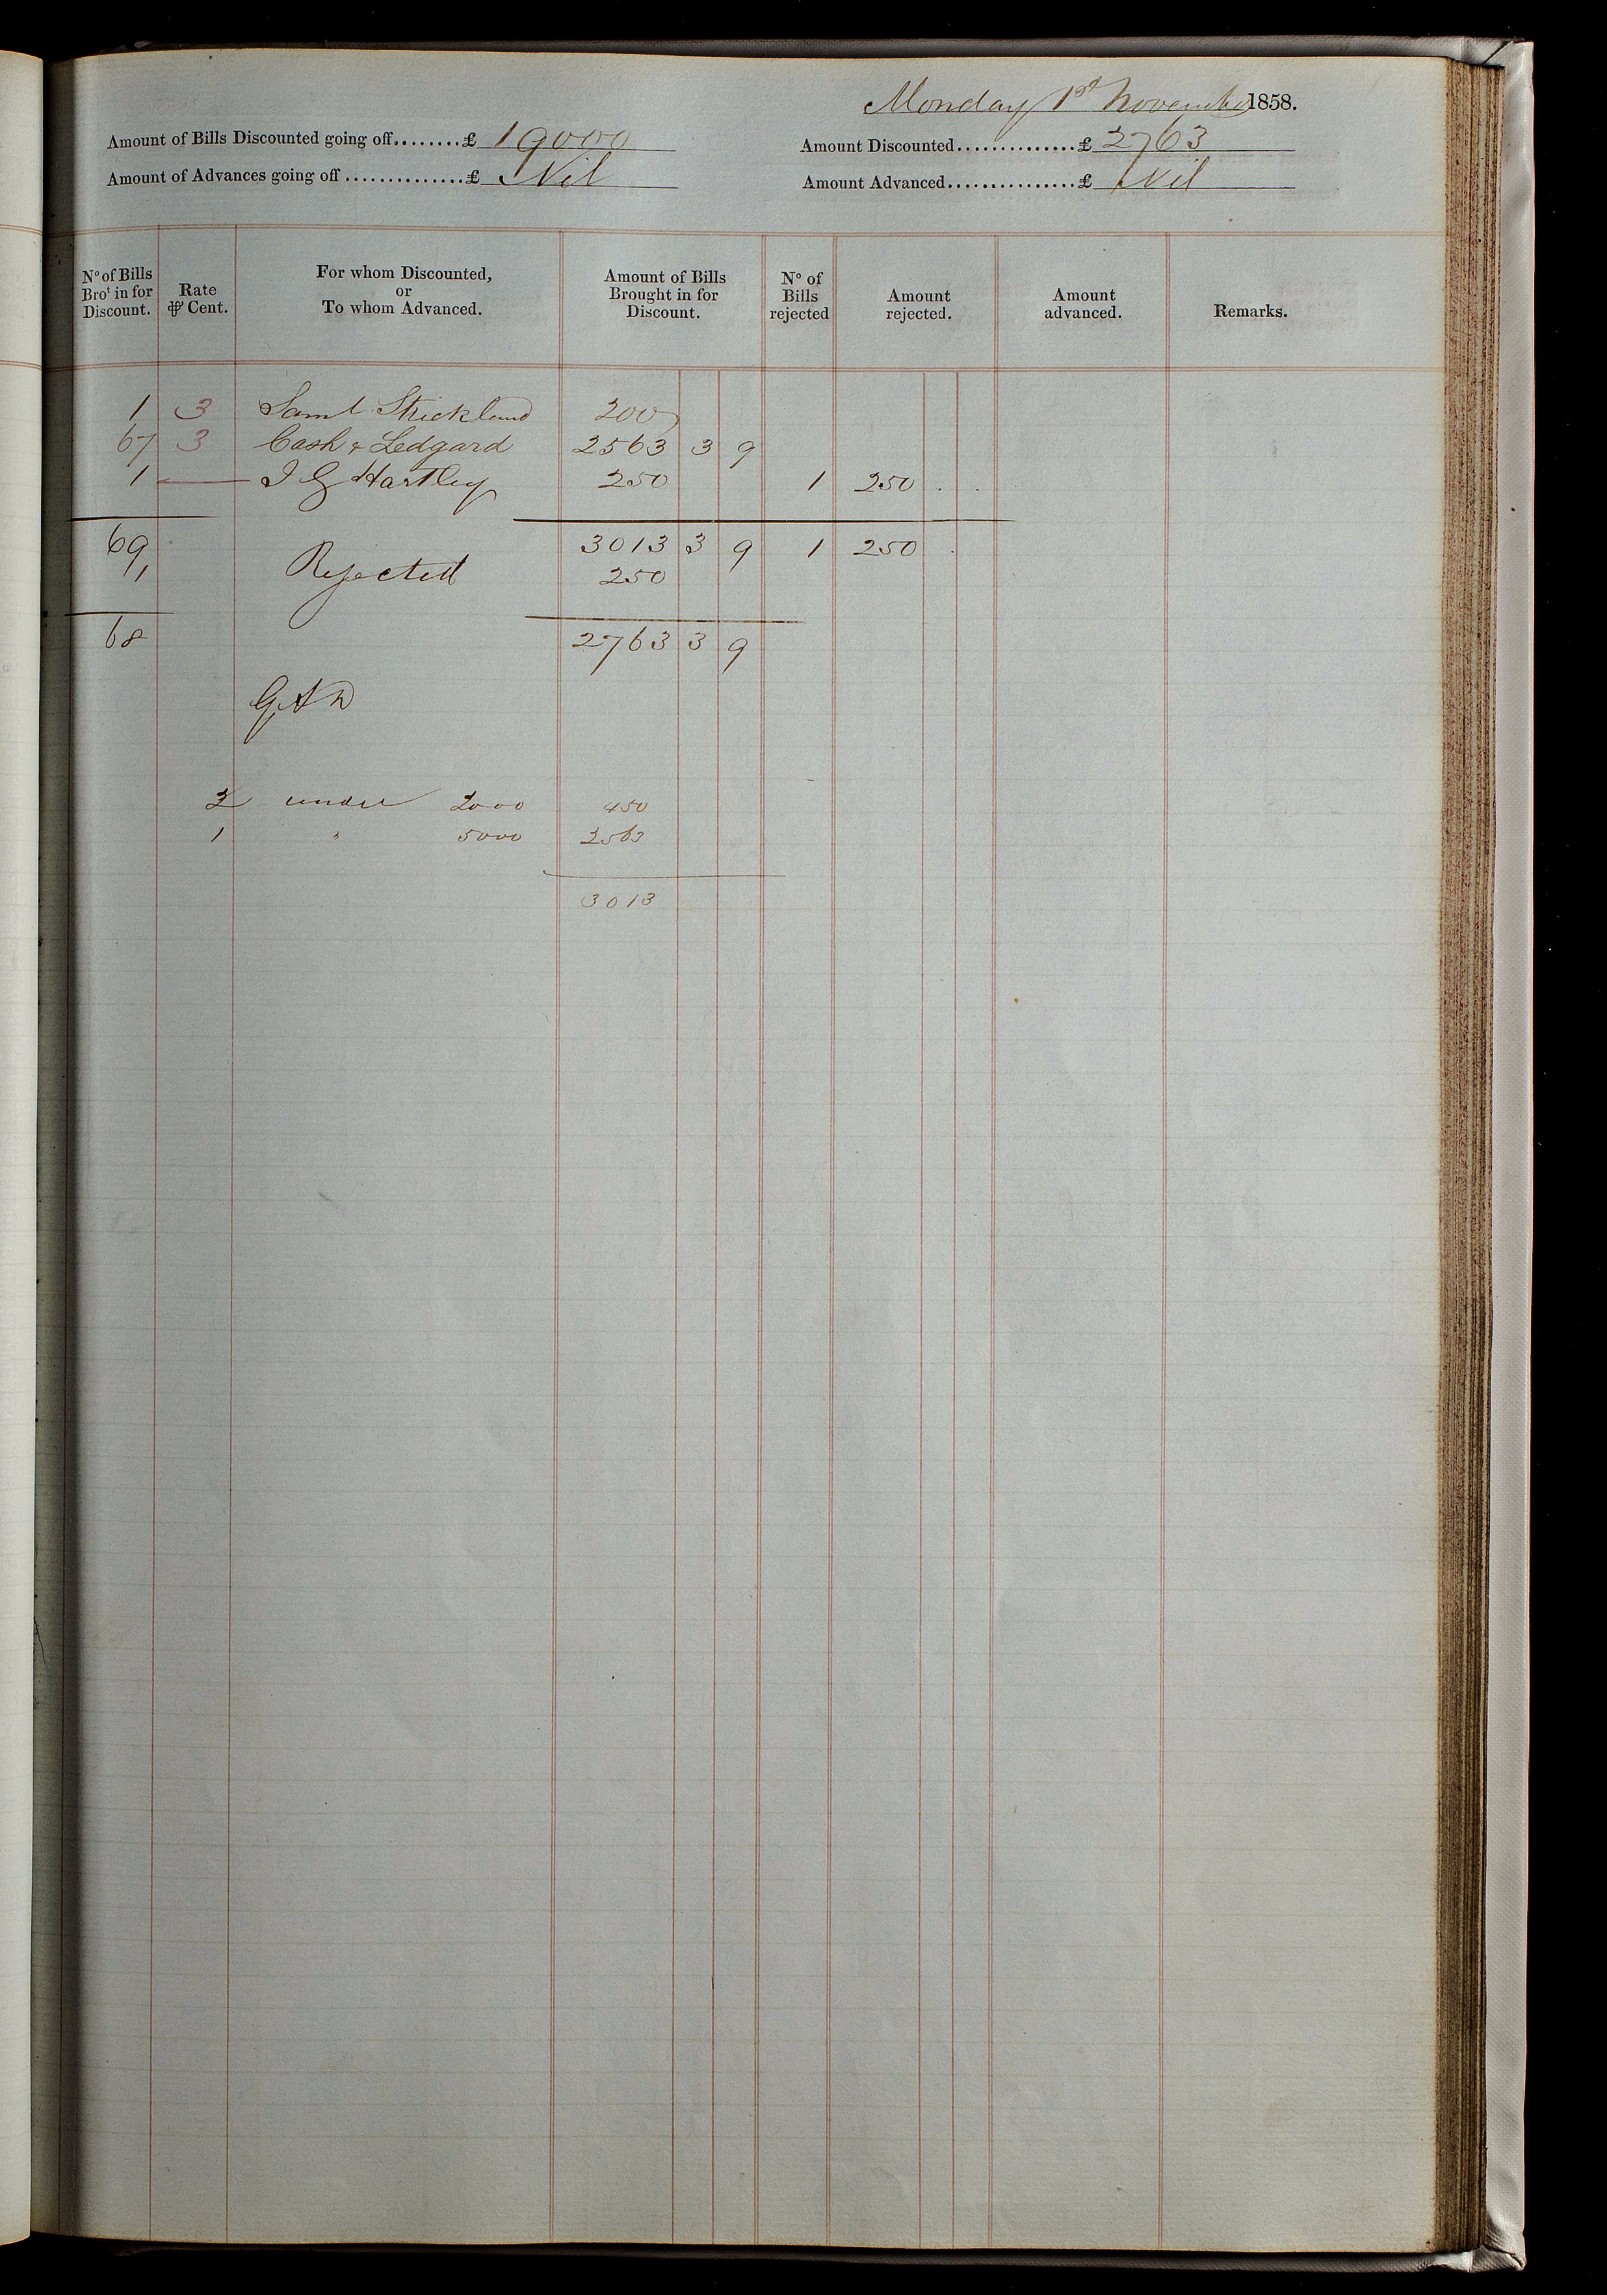 Monday 1st November 1858.
Amount of Bills Discounted going off........£ 19000
Amount Discounted..............£ 2763
Amount of Advances going off..............£ Nil
Amount Advanced...............£ Nil
No of Bills Brot in for Discount. Rate ⅌ Cent. For whom Discounted, or To whom Advanced. Amount of Bills Brought in for Discount. No of Bills rejected Amount rejected. Amount advanced. Remarks.
1 3 Saml Strickland 200
67 3 Cash & Ledgard 2563 3 9
1 — J G Hartley 250 1 250 . .
69 3013 3 9 1 250 .
1 Rejected 250
68 2763 3 9
2 under 2000 450
1 " 5000 2563
3013